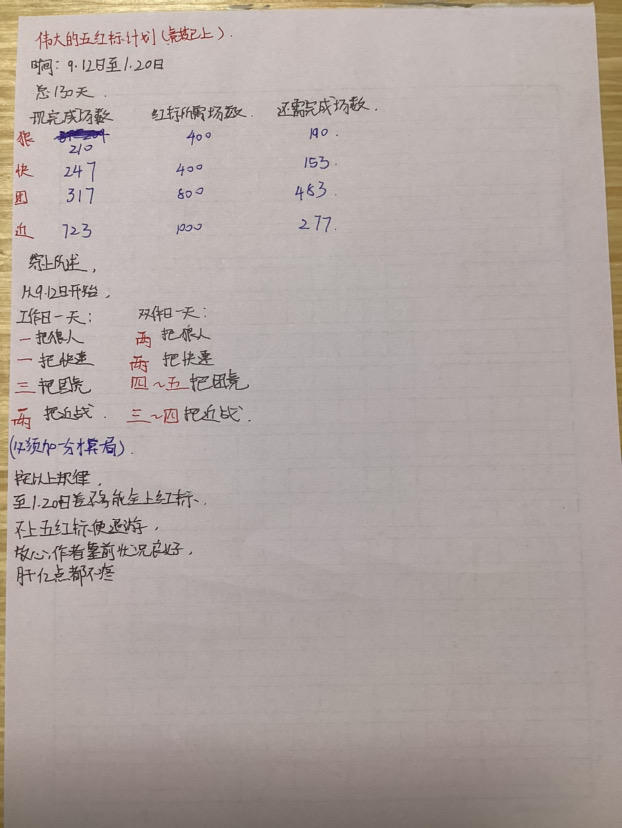 伟大的五红标计划(竞技已上).
时间：9.12日至1.20日
总130天.
现完成场数 红标所需场数. 还需完成场数.
狼 210 400 190.
快 247 400 153.
团 317 800 483.
近 723 1000 277.
综上所述,
从9.12日开始,
工作日一天： 双休日一天：
一把狼人 两把狼人
一把快速 两把快速
三把团竞 四~五把团竞
两把近战. 三~四把近战.
(必须加一分才算局).
按以上规律,
至1.20日差不多能全上红标.
不上五红标便退游,
放心,作者章前状况良好,
肝亿点都不疼